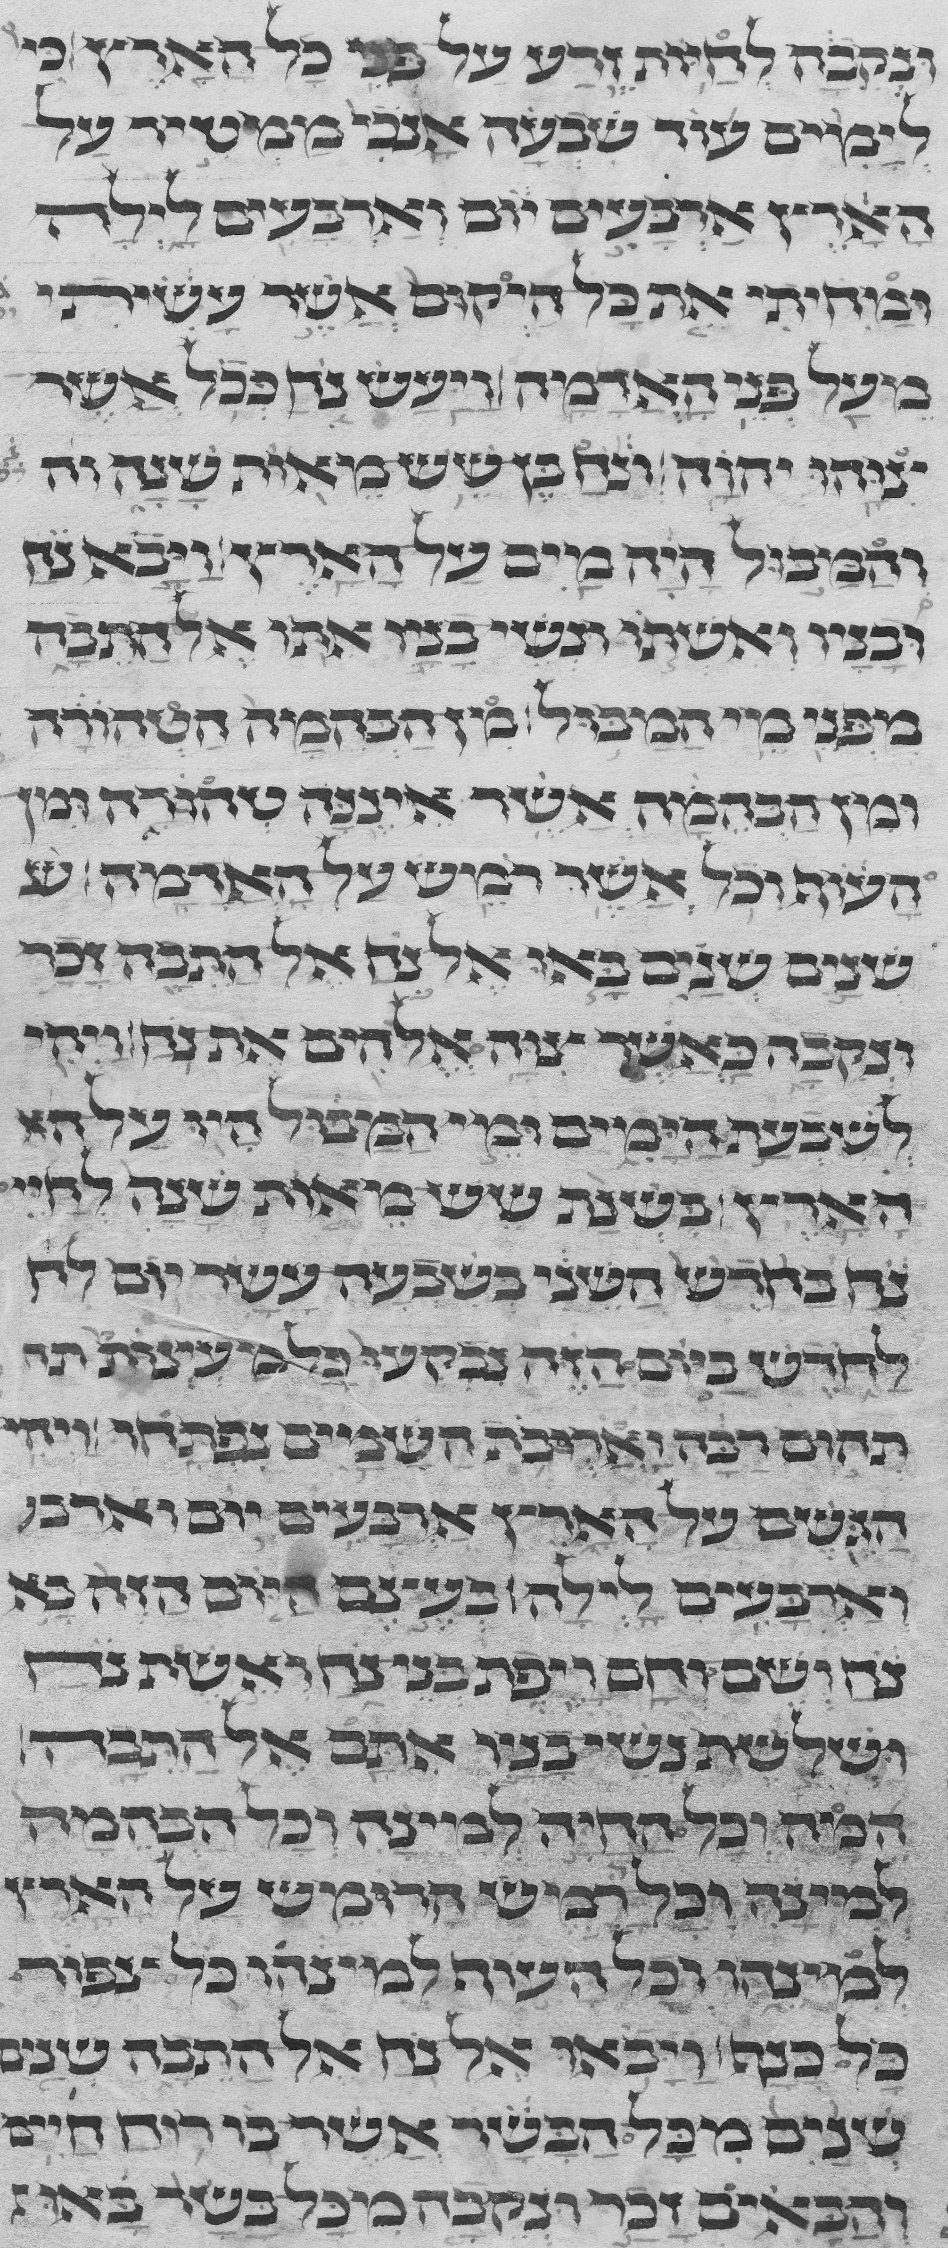 ונקבה לחיות זרע על פני כל הארץ כי
לימים עוד שבעה אנכי ממטיר על
הארץ ארבעים יום וארבעים לילה
ומחיתי את כל היקום אשר עשיתי
מעל פני האדמה ויעש נח ככל אשר
צוהו יהוה ונח בן שש מאות שנה וה
והמבול היה מים על הארץ ויבא נח
ובניו ואשתו ונשי בניו אתו אל התבה
מפני מי המבול מן הבהמה הטהורה
ומן הבהמה אשר איננה טהורה ומן
העוף וכל אשר רמש על האדמה ש
שנים שנים באו אל נח אל התבה זכר
ונקבה כאשר צוה אלהים את נח ויהי
לשבעת הימים ומי המבול היו על הא
הארץ בשנת שש מאות שנה לחיי
נח בחדש השני בשבעה עשר יום לח
לחדש ביום הזה נבקעו כל מעינות תה
תהום רבה וארבת השמים נפתחו ויהי
הגשם על הארץ ארבעים יום וארב
וארבעים לילה בעצם היום הזה בא
נח ושם וחם ויפת בני נח ואשת נח
ושלשת נשי בניו אתם אל התבה
המה וכל החיה למינה וכל הבהמה
למינה וכל רמש הרומש על הארץ
למינהו וכל העוף למינהו כל צפור
כל כנף ויבאו אל נח אל התבה שנים
שנים מכל הבשר אשר בו רוח חיים
והבאים זכר ונקבה מכל בשר באו